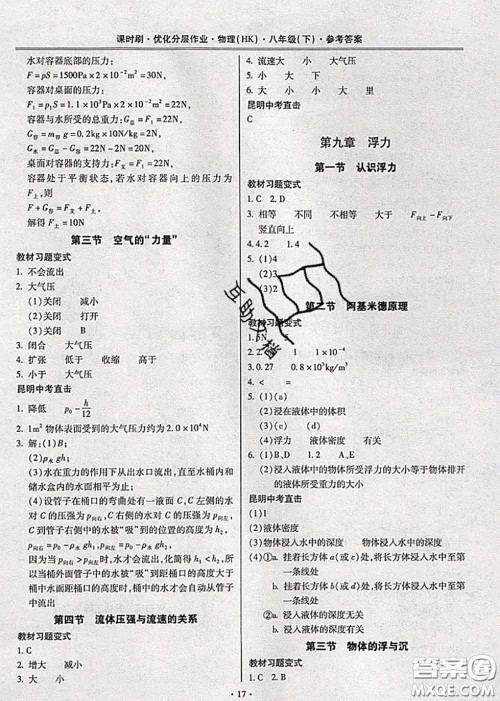 课时刷·优化分层作业·物理(HK)·八年级(下)·参考答案
水对容器底部的压力:
F=pS=1500Pa×2×10⁻²m²=30N
容器对桌面的压力:
F=p₁S=1.1×10³Pa×2×10⁻²m²=22N
容器与水所受的总重力:G总=F压=22N
G容=m容g=0.2kg×10N/kg=2N
G水=G总-G容=22N-2N=20N
桌面对容器的支持力:F支=F压=22N
容器处于平衡状态,若水对容器向上的压力为
F上,则
F+G容=F支+F上
解得F上=10N
第三节 空气的“力量”
教材习题变式
1. 不会流出
2. 大气压
(1)关闭 减小
(2)关闭 打开
(3)关闭 B
3. 闭合 大气压
4. 扩张 低于 收缩 高于
5. 小于 大气压
昆明中考直击
1. 降低 p₀-h/12
2. 1m²物体表面受到的大气压力约为2.0×10⁴N
3. 解:(1)B;
(2)D;
(3)水在重力的作用下从出水口流出,直至水桶内和
储水盒内的水面相平;
(4)设管子在桶口的弯曲处有一液面C,C左侧的水
对C的压强为p向右,C右侧的水对C的压强为p向左,
C到管子右侧桶中的水被“吸”到的位置的高度为h₁,
C到管子左侧桶中的水被“吸”到的位置的高度为h₂,
p向右=p₀-ρ水gh₁;p向左=p₀-ρ水gh₂
因为当p向右>p向左时,水才会流出,化简得h₁<h₂,所
以当桶外面管子中的水被“吸”到距桶口的高度大于
桶中水面到距桶口的高度时,水才能自动从管子中
流出
第四节 流体压强与流速的关系
教材习题变式
1. C
2. 增大 减小
3. 大 小
4. 流速大 小 大气压
5. 小 大 下
6. 大 小 大 小 里
昆明中考直击
C
第九章 浮力
第一节 认识浮力
教材习题变式
1. C 2. D
3. 相等 不同 不相等 大于 F向上-F向下
竖直向上
4. 4.2 1.4
5. (1)4
(2)3
(3)2
第二节 阿基米德原理
教材习题变式
2. 0.1 1 1×10⁴
3. 27 0.03 0.8×10³kg/m³
4. < = =
5. (1)(a)
(2)浸在液体中的体积
(3)浮力 液体密度 有关
6. (1)(a)
(2)浸入液体中的物体所受浮力的大小等于物体排开
的液体所受重力的大小
昆明中考直击
(1)1
(2)液体密度
(3)物体浸入水中的深度 物体浸入水中的深度
(4)①a. 挂着长方体a(或c)处,将长方体浸入水中至第
一条线处
b. 挂着长方体b(或d)处,将长方体浸入水中至第
一条线处
②a. 浸入液体的深度无关
b. 浸入液体的深度有关
第三节 物体的浮与沉
教材习题变式
1. C 2. D
·17·
互助文档
答案圈
MXQE.COM